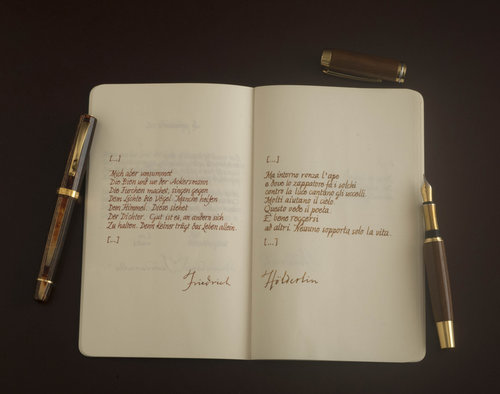 [...]
Mich aber umsummet
Die Bien und wo der Ackersmann
Die Furchen machet, singen gegen
Dem Lichte die Vögel. Manche helfen
Dem Himmel. Diese siehet
Der Dichter. Gut ist es, an andern sich
Zu halten. Denn keiner trägt das Leben allein.
[...]
Friedrich
[...]
Ma intorno ronza l'ape
e dove lo zappatore fa i solchi
contro la luce cantano gli uccelli.
Molti aiutano il cielo.
Questo vede il poeta.
E' bene reggersi
ad altri. Nessuno sopporta solo la vita.
[...]
Hölderlin